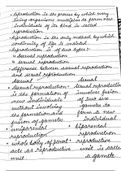 Reproduction is the process by which every
living organisms multiplies to form new
individuals of its kind is called
reproduction.
Reproduction is the only method by which
continuity of life is
Reproduction is of two types
Asexual reproduction
Sexual reproduction
Difference between asexual reproduction
and sexual reproduction
Asexual
Sexual
Asexual reproduction
Sexual reproduction
is the formation of
involves fusion
new individuals
of two
without involving
gametes to
the formation and
form a new
fusion of gamete
individual
Uniparental
Biparental
reproduction
reproduction
whole body of parent
reproductive
acts as reproductive
unit is called
unit
a gamete